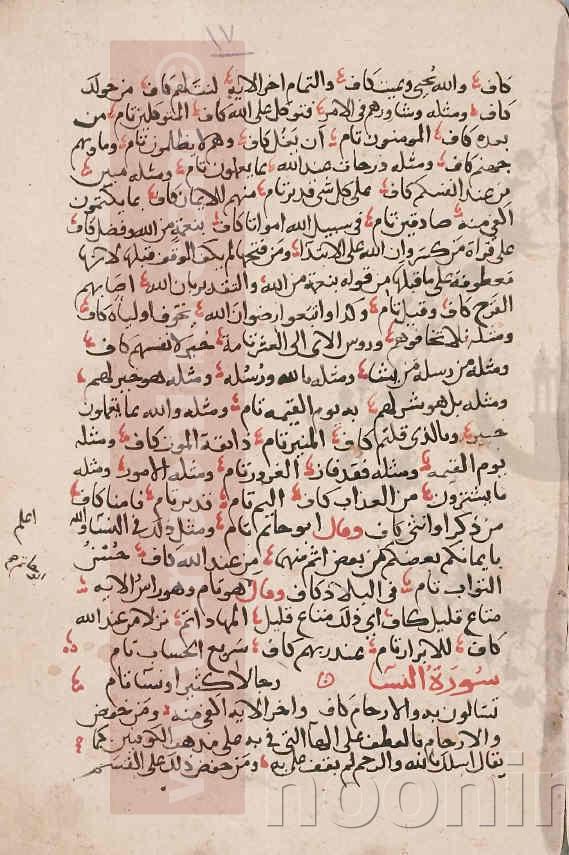 ١٧
كاف والله يحيى ويميت كاف والتمام اخر الاية لنت لهم كاف من حولك
كاف ومثله وشاورهم فى الامر فتوكل على الله كاف المتوكلين تام من
بعده كاف المومنون تام ان يغل كاف وهم لا يظلمون تام وماويهم
جهنم كاف ومثله درجات عند الله بما يعملون تام ومثله مبين
من عند انفسكم كاف على كل شى قدير تام منهم للايمان كاف بما يكتمون
اكفى منه صادقين تام فى سبيل الله امواتا كاف بنعمة من الله وفضل كاف
على قراة من كسر وان الله على الابتدا ومن فتحها لم يكف الوقف قبلها لانها
معطوفة على ما قبلها من قوله بنعمة من الله والتقدير بان الله اصابهم
القرح كاف وقيل تام وكذا واتبعوا رضوان الله يخوف اولياه كاف
ومثله فلا تخافوهم وروس الاى الى العشر تامة خير لانفسهم كاف
ومثله من رسله من يشا ومثله بالله ورسله ومثله هو خير لهم
ومثله بل هو شر لهم به يوم القيمه تام ومثله والله بما يعملون
خبير وبالذى قلتم كاف المنير تام ذايقة الموت كاف ومثله
يوم القيمه ومثله فقد فاز الغرور تام ومثله الامور ومثله
ما يشترون من العذاب كاف اليم تام قدير تام فامنا كاف
من ذكر او انثى كاف وقال ابو حاتم تام ومثل ذلك فى النسا والله
اعلم
بايمانكم بعضكم من بعض اتم منهما من عند الله كاف حسن
الثواب تام فى البلاد كاف وقال هو تام وهو راس الاية
متاع قليل كاف اى ذلك متاع قليل المهاد اتم نزلا من عند الله
كاف للابرار تام عند ربهم كاف سريع الحساب تام
سورة النسا رجالا كثيرا ونسا تام
تسالون به والارحام كاف واخر الاية اكفى منه ومن خفض
والارحام بالعطف على الها التى فى به على مذهب الكوفيين كما
يقال اسلك بالله والرحم لم يقف على به ومن خفض ذلك على القسم
noonin